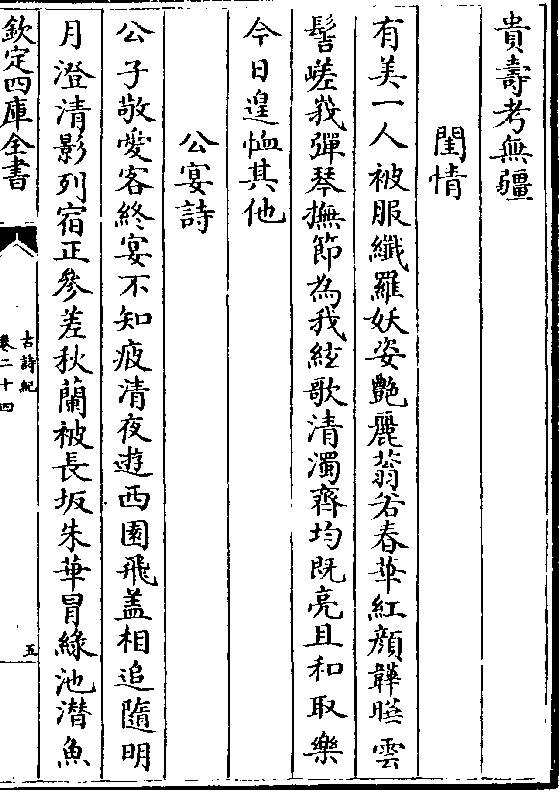 貴壽考無疆
閨情
有美一人被服纖羅妖姿艷麗蓊若春華紅顔韡曄雲
髻嵯峩彈琴撫節為我絃歌清濁齊均既亮且和取樂
今日遑恤其他
公宴詩
公子敬愛客終宴不知疲清夜遊西園飛盖相追隨明
月澄清影列宿正參差秋蘭被長坂朱華冒綠池潛魚
欽定四庫全書
古詩紀
卷二十四
五